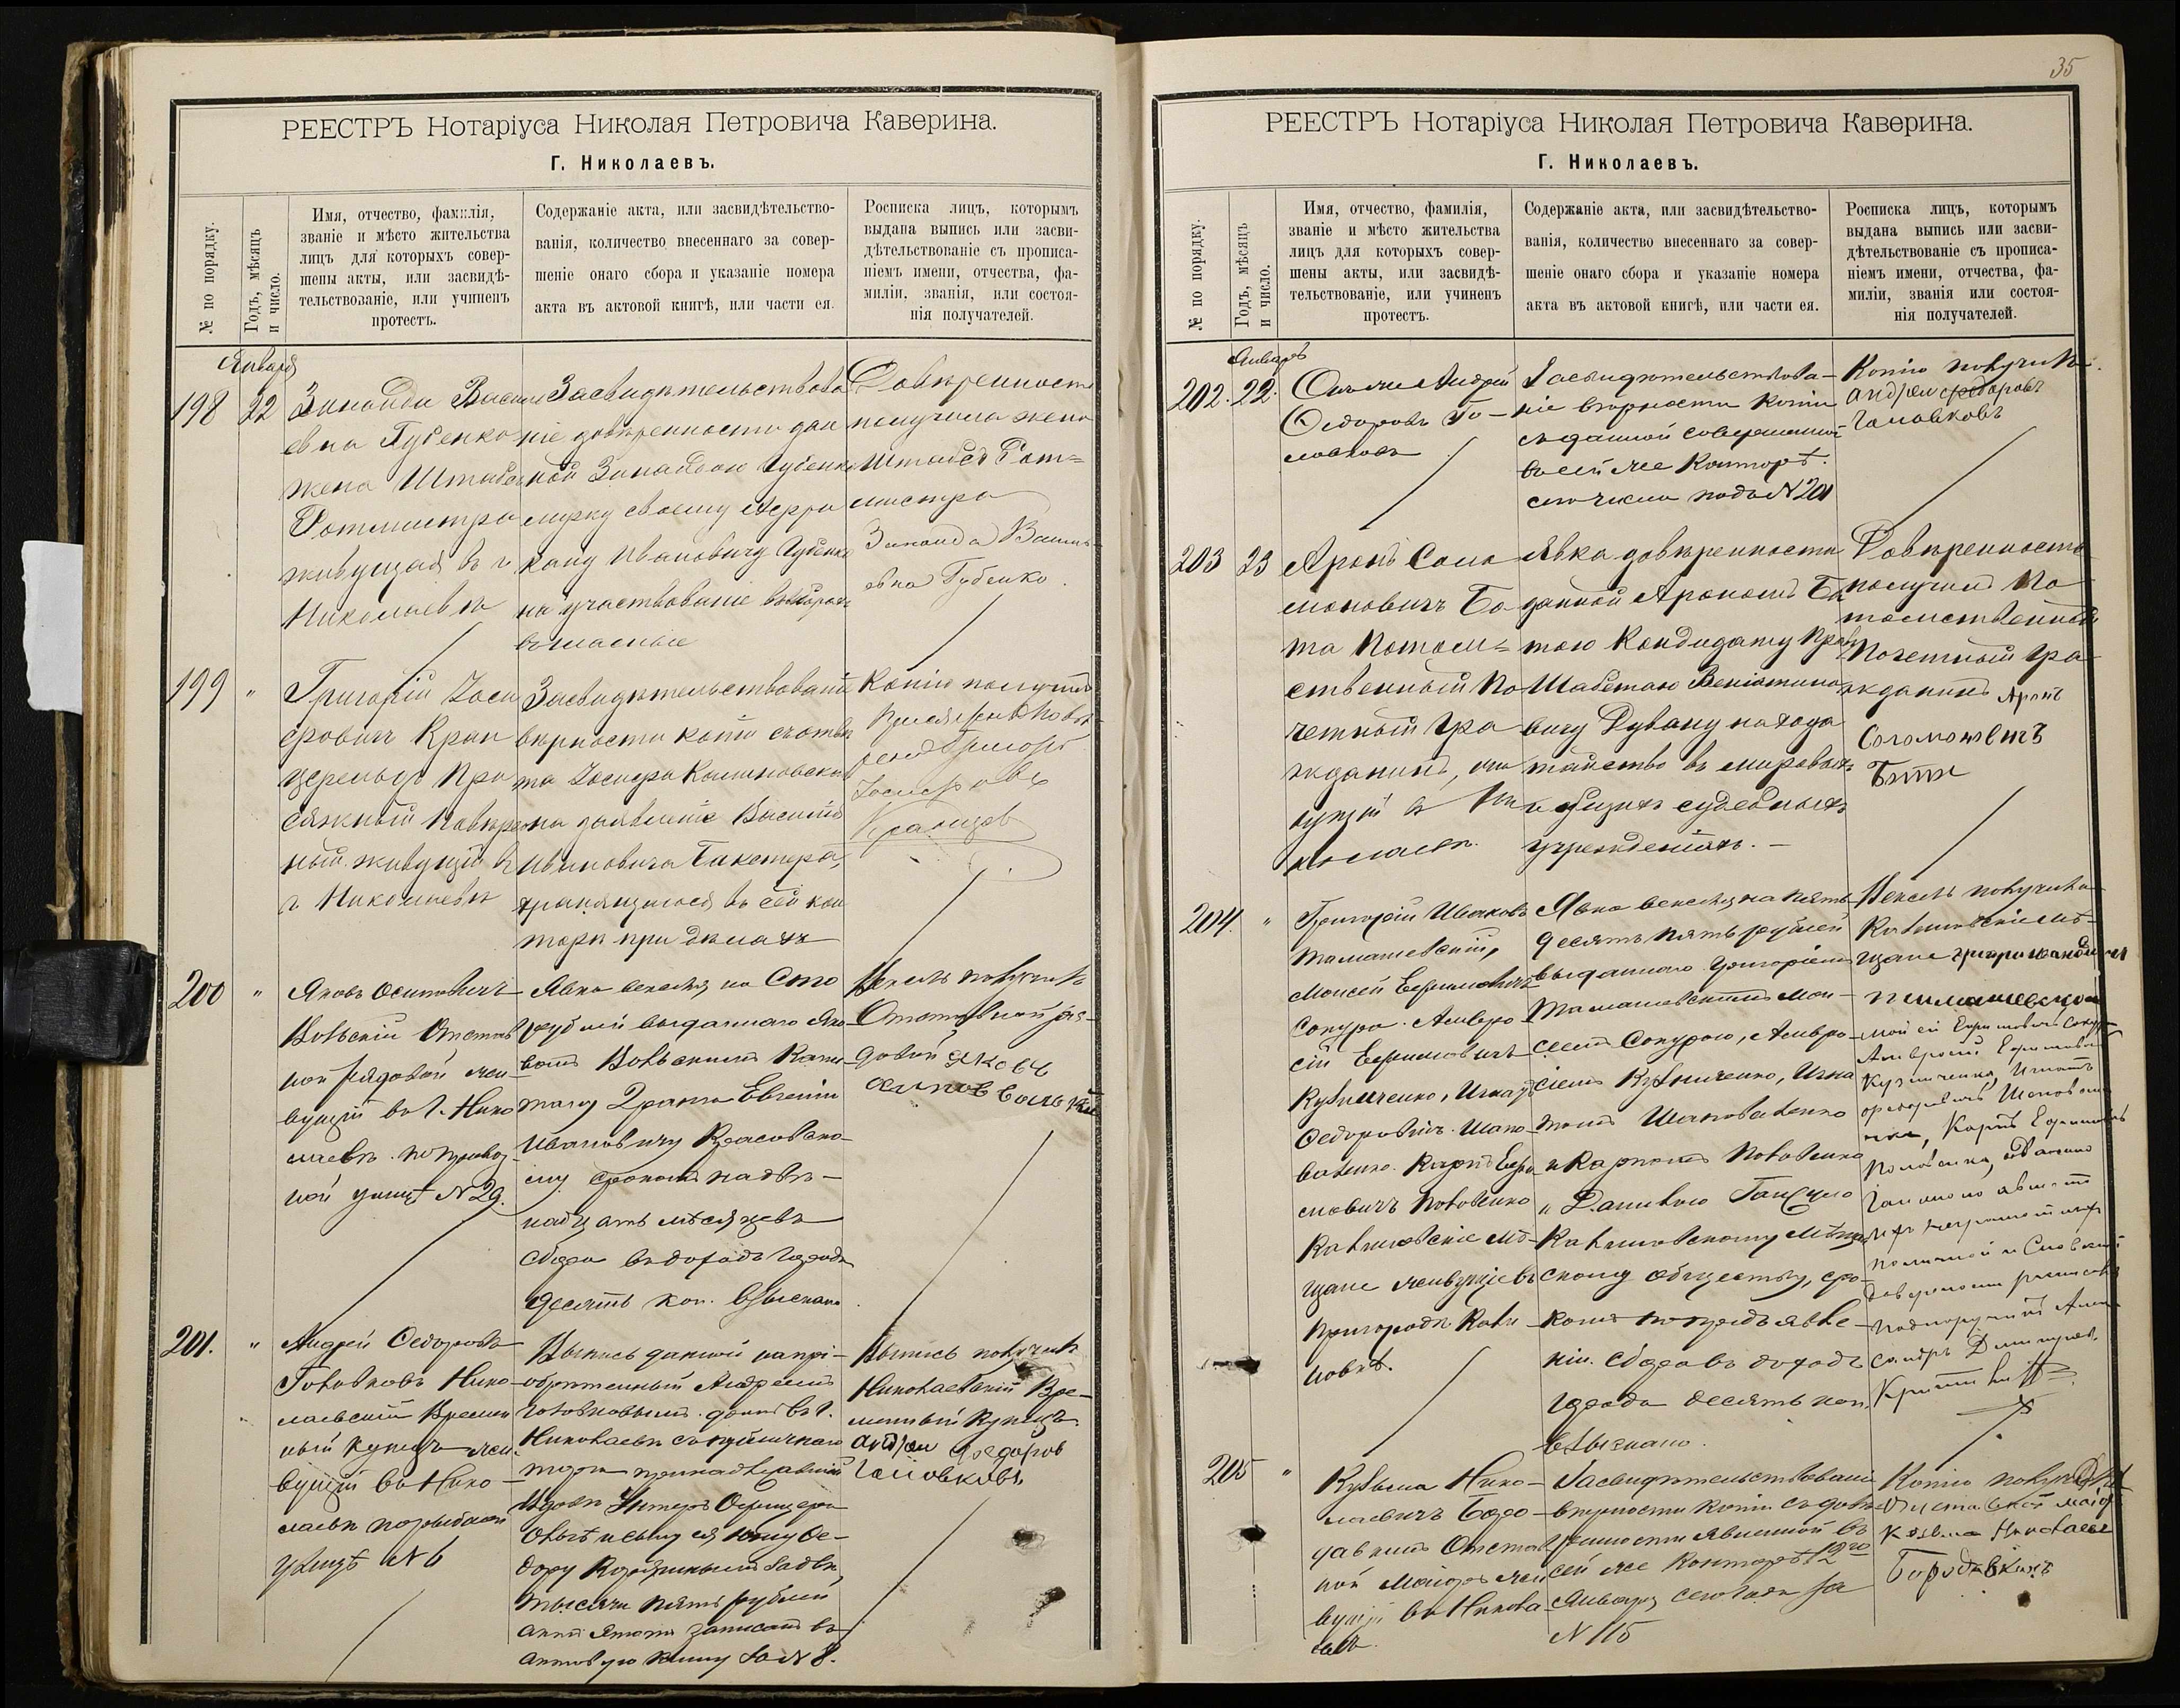 РЕЕСТРЪ Нотаріуса Николая Петровича Каверина.
Г. Николаевъ.
№ по порядку.
Годъ, мѣсяцъ
и число.
Имя, отчество, фамилія,
званіе и мѣсто жительства
лицъ для которыхъ совер-
шены акты, или засвидѣ-
тельствованіе, или учиненъ
протестъ.
Содержаніе акта, или засвидѣтельство-
ванія, количество внесеннаго за совер-
шеніе онаго сбора и указаніе номера
акта въ актовой книгѣ, или части ея.
Росписка лицъ, которымъ
выдана выпись или засви-
дѣтельствованіе съ прописа-
ніемъ имени, отчества, фа-
миліи, званія, или состоя-
нія получателей.
Января
198
22
Зинаида Василь
евна Губенко
жена Штабсъ
Ротмистра
живущая въ г
Николаевѣ
Засвидѣтельствова
ніе довѣренности дан
ной Зинаидою Губенко
мужу своему
Ивановичу Губенко
на участвованіе въ выборахъ
въ гласные
Довѣренность
получила жена
Штабсъ Рот=
мистра
Зинаида Василь
евна Губенко.
199
"
Григорій Іоси
фовичъ Кран
цфельдъ При
сяжный Повѣрен
ный живущій въ
г. Николаевѣ
Засвидѣтельствованіе
вѣрности копіи съ отвѣ
та Іосифа Калиновска
на заявленіе Василія
Ивановича
хранящагося въ сей кон
торѣ при дѣлахъ
Копію получилъ
Присяжный Повѣ-
рен Григорій
Іосифовъ
200
"
Яковъ Осиповичъ
Вольскій Отстав
ной рядовой жи
вущій въ г. Нико
лаевѣ по
ной улицѣ № 29.
Явка векселя на Сто
рублей выданнаго Яко
вомъ Вольскимъ Капи
тану 2 ранга Евгенію
Ивановичу Красовско-
му срокомъ на двѣ-
надцать мѣсяцевъ
сбора въ доходъ города
десять коп. взыскано
Вексель получилъ
Отставной ря-
довой Яковъ
Осиповъ Вольскій
201.
"
Андрей Ѳедоровъ
Головковъ Нико
лаевскій Времен
ный купецъ жи
вущій въ Нико-
лаевѣ по Рыбной
улицѣ № 6
Выпись данной на прі-
обрѣтенный Андреемъ
Головковымъ домъ въ г.
Николаевѣ съ публичнаго
торга принадлежавшій
Вдовѣ Унтеръ Офицера
Ольгѣ и сыну ея
за двѣ
тысячи пять рублей
актъ этотъ записанъ въ
актовую книгу за № 8.
Выпись получилъ
Николаевскій Вре-
менный Купецъ
Андрей Федоровъ
Головковъ
35
РЕЕСТРЪ Нотаріуса Николая Петровича Каверина.
Г. Николаевъ.
№ по порядку.
Годъ, мѣсяцъ
и число.
Имя, отчество, фамилія,
званіе и мѣсто жительства
лицъ для которыхъ совер-
шены акты, или засвидѣ-
тельствованіе, или учиненъ
протестъ.
Содержаніе акта, или засвидѣтельство-
ванія, количество внесеннаго за совер-
шеніе онаго сбора и указаніе номера
акта въ актовой книгѣ, или части ея.
Росписка лицъ, которымъ
выдана выпись или засви-
дѣтельствованіе съ прописа-
ніемъ имени, отчества, фа-
миліи, званія или состоя-
нія получателей.
Январь
202.
22.
Онъ же Андрей
Ѳедоровъ Го-
ловковъ
Засвидѣтельствова-
ніе вѣрности копіи
съ данной совершенной
въ сей же Конторѣ.
сего числа подъ № 201
Копію получилъ
Андрей Федоровъ
Головковъ
203
23
Аронъ Соло
моновичъ Бо
та Потом=
ственный По
четный гра
жданинъ, жи
вущій въ Ни
колаевѣ.
Явка довѣренности
данной Арономъ Бо
тою Кандидату Правъ
Шабетаю Веніамино
вичу Дувану на хода
тайство въ мировыхъ
и общихъ судебныхъ
учрежденіяхъ. -
Довѣренность
получилъ По
томственный
Почетный гра
жданинъ Аронъ
Соломоновичъ
Бота
204.
"
Григорій Ивановъ
Томашевскій,
Моисей Ефимовичъ
Сокура. Амвро
сій Ефимовичъ
Кузьменко, Игнатъ
Ѳедоровичъ Шапо
валенко. Карпъ Ефи
мовичъ Половенко
щане живущіе въ
пригородѣ
Явка векселя на пять-
десятъ пять рублей
выданнаго Григоріемъ
Томашевскимъ Мои-
сеемъ Сокурою, Амвро-
сіемъ Кузьменко, Игна
томъ Шаповаленко
и Карпомъ Половенко
скому обществу, сро-
комъ по предъявле-
ніи. Сбора въ доходъ
города десять коп.
взыскано.
Вексель получили
щане
Моисей Ефимовичъ Сокура
Амвросій Ефимовичъ
Кузьменко, Игнатъ
Ѳедоровичъ Шаповален
ко, Карпъ Ефимовичъ
Половенко,
205
"
Кузьма Нико-
лаевичъ Боро-
давкинъ Отстав
ной Маіоръ жи
вущій въ Никола
евѣ.
Засвидѣтельствованіе
вѣрности копіи съ довѣ
ренности явленной въ
сей же Конторѣ 12го
Января сего года за
№ 115
Копію получилъ
Отставной маіоръ
Козьма Николаевъ
Бородавкинъ